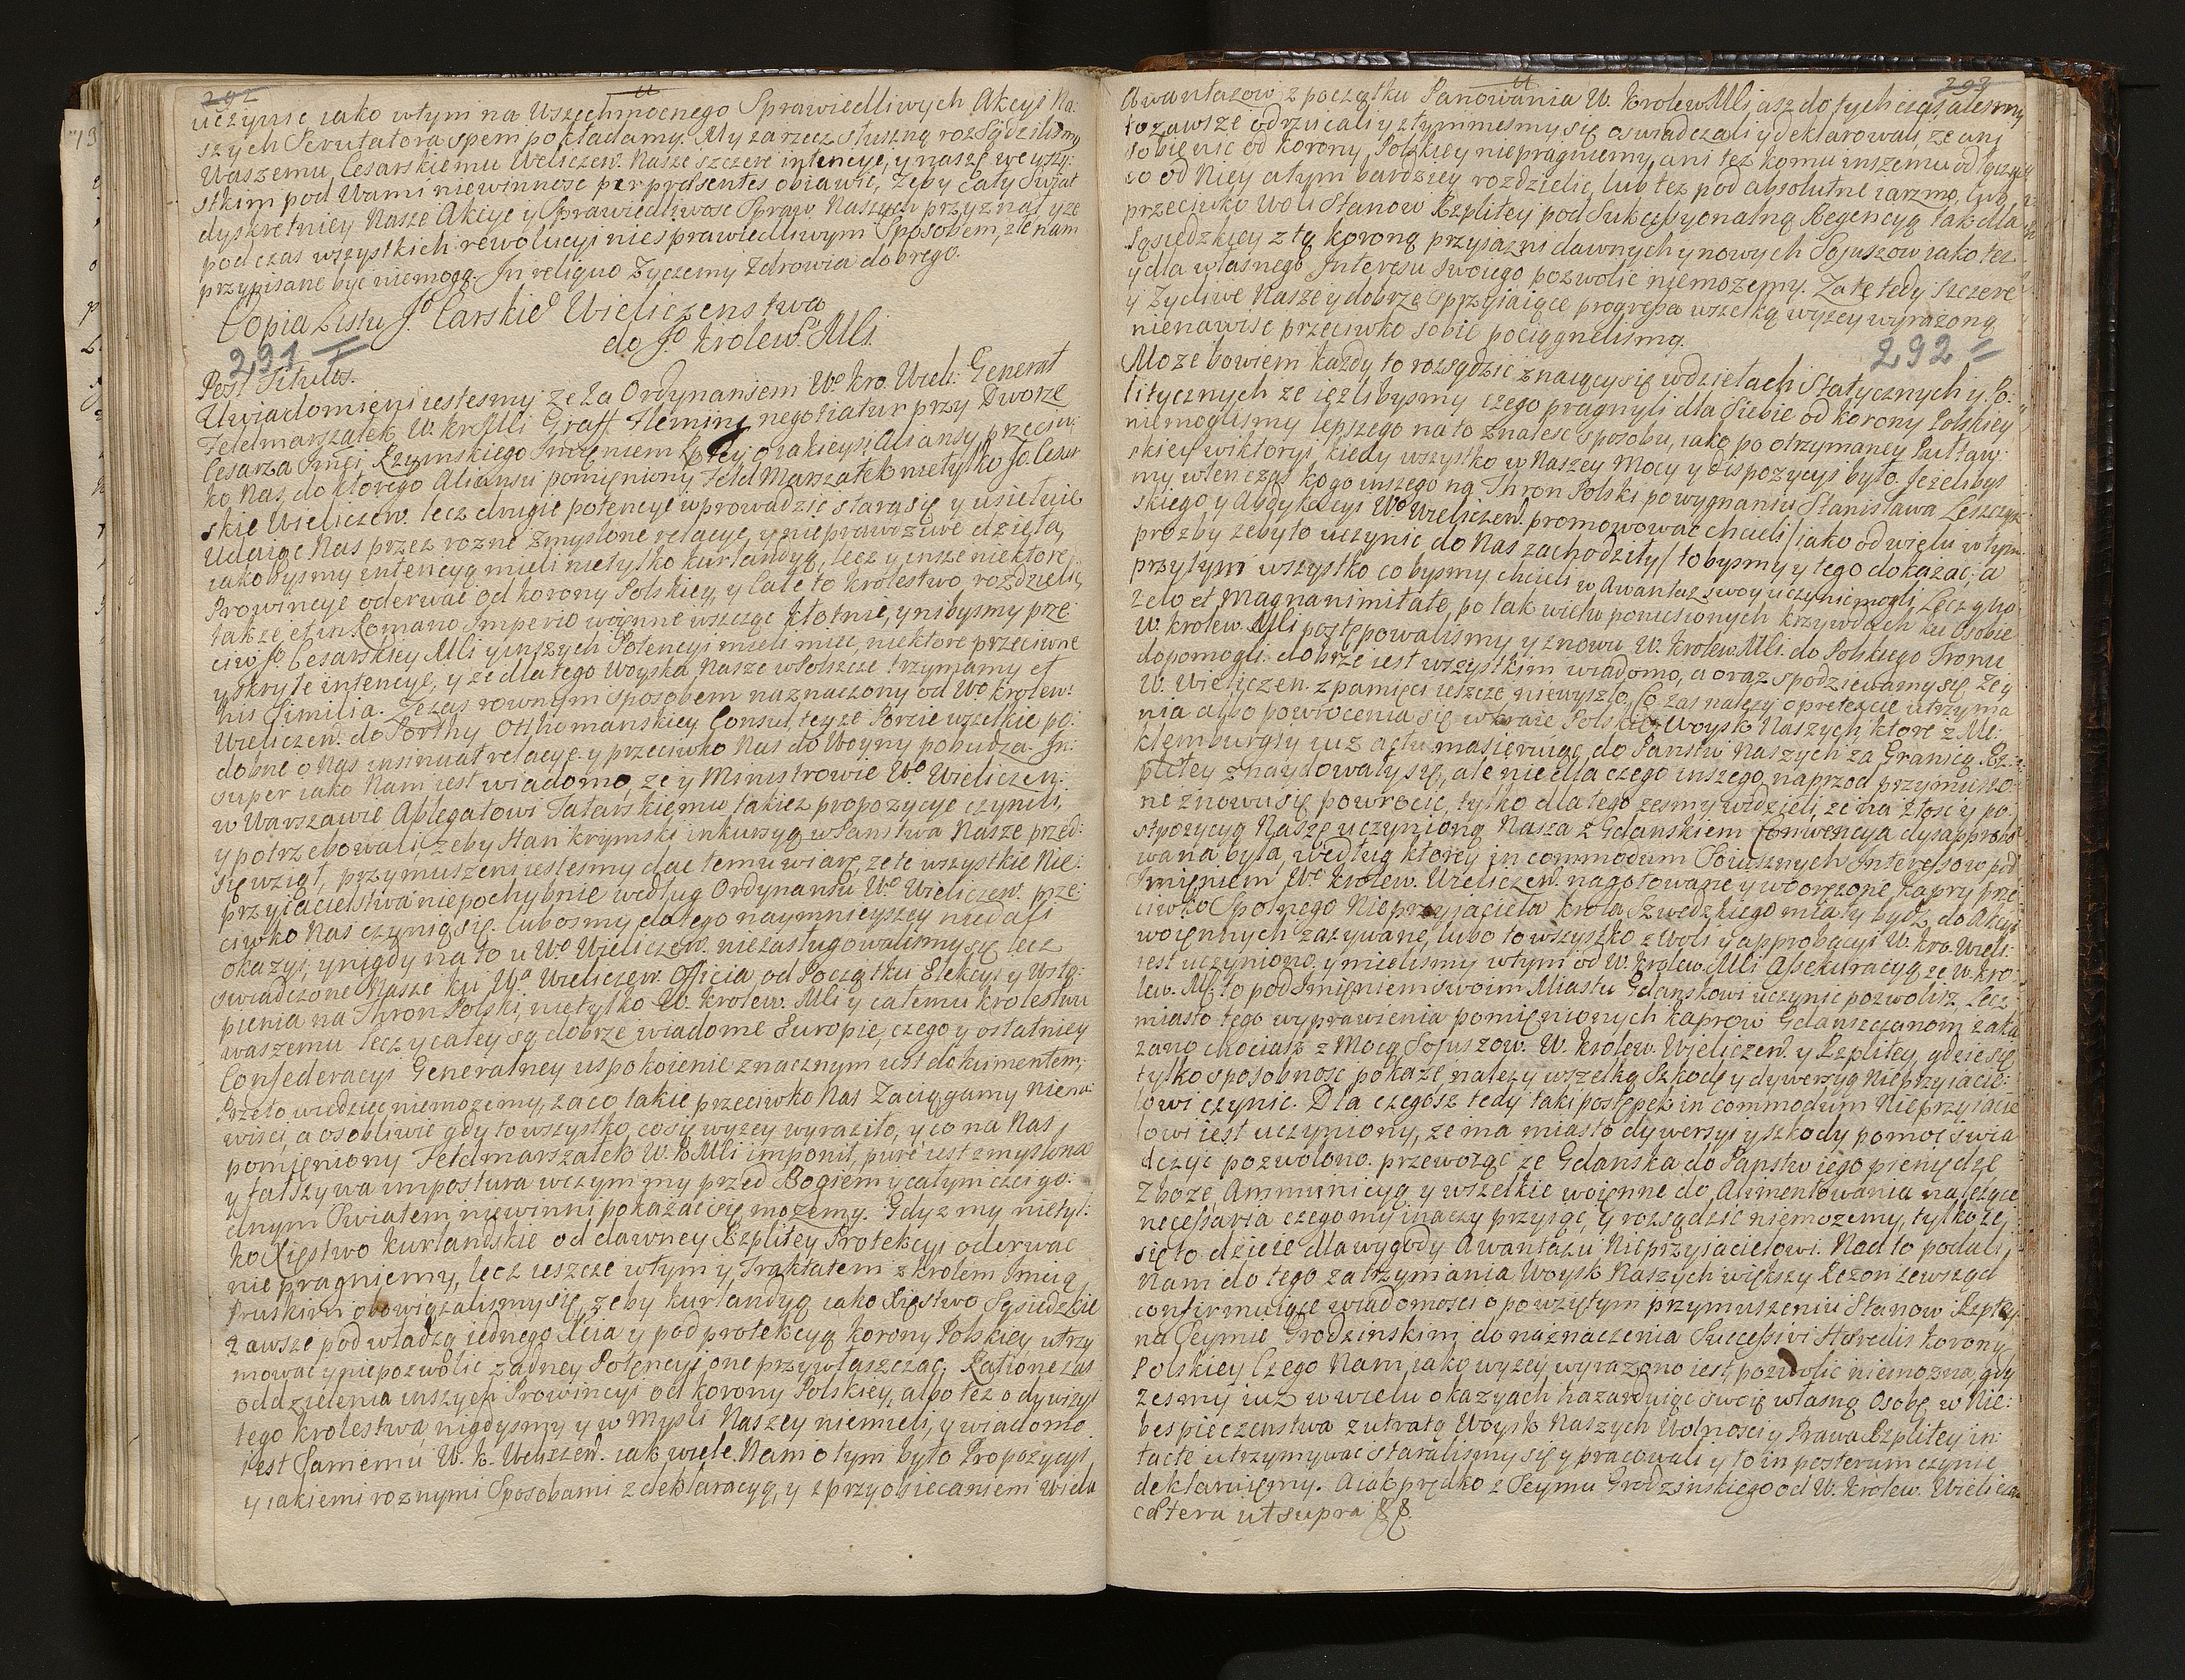 292
uczynic iako wtym na Wszechmocnego Sprawiedliwych Akcyi Na:
szych Scrutatora spem pokładamy. My za rzecz słuszną rozsądzilismy
Waszemu Cesarskiemu Weliczew. Nasze szczere intencye, y naszę we wszy:
stkim pod Wami niewinnosc per præsentes obiawic, żeby cały Swiat
dyskretniey Nasze Akcye y Sprawiedliwosc Spraw Naszych przyznał y ze
podczas wszystkich rewolucyi niesprawiedliwym Sposobem, zle nam
przypisane być niemogą. In reliquo Zyczemy Zdrowia dobrego.
Copia Listu Jo Carskieo Wieliczenstwa
do Jo Krolew. Mli.
291
Post Titulos.
Uwiadomieni iestesmy ze za Ordynansem Wo Kro. Wieli: Generał
Feldmarszałek W. Kr Mli Graff Fleming negotiatur przy Dworze
Cesarza Jmci Rzymskiego Imieniem o iakieysi Aliansy przeciw:
ko Nas, do ktorego Aliansu pomięniony Feld Marszałek nietylko Jo Cesar
skie Wieliczew. lecz drugie potencye wprowadzic stara się y usielnie
Udaiąc Nas przez rozne zmyslone relacye, y nieprawdziwe dzieła,
iakobysmy intencyą mieli nietylko Kurlandyą, lecz y insze niektore
Prowincye oderwać od Korony Polskiey, y Całe to Krolestwo rozdzielic
także, et in Romano Imperio woienne wszcząc kłotnie, y nibysmy prze
ciw Jo Cesarskiey Mli y inszych Potencyi mieli miec, niektore przeciwne
y skryte intencye, y ze dlatego Woyska Nasze w Polszcze trzymamy et
his Similia. Zczas rownym sposobem naznaczony od Wo Krolew:
Wieliczew. do Porthy Otthomanskiey Consul, teyze Porcie wszelkie po:
dobne o Nas insinuał relacye y przeciwko Nas do Woyny pobudza. In:
super iako Nam iest wiadomo, ze y Ministrowie Wo Wieliczen:
w Warszawie Ablegatowi Tatarskiemu takiez propozycye czynili,
y potrzebowali, zeby Han Krymski inkursyą w Panstwa Nasze przed:
się wziął, przymuszeni iestesmy dac temu wiarę, ze te wszystkie Nie:
przyiacielstwa niepochybnie według Ordynansu Wo Wieliczew. prze
ciwko Nas czynią się. lubosmy do tego naymnieyszey niedali
okazyi, y nigdy na to u Wo Wieliczew. niezasługowalismy się lecz
swiadczone Nasze ku Wa Wieliczew. Officia od Początku Elekcyi y Wstą:
pienia na Thron Polski, nietylko W. Krolew. Mli y całemu Krolestwu
waszemu lecz y całey są dobrze wiadome Europie, czego y ostatniey
Confederacyi Generalney uspokoienie znacznym iest dokumentem;
Przeto wiedziec niemożemy, zaco takie przeciwko Nas Zaciągamy niena:
wisci, a osobliwie gdy to wszystko, co się wyzey wyraziło, y co na Nas
pomięniony Feldmarszałek W. K Mli imponit, pure iest zmyslona
y fałszywa impostura w czym my przed Bogiem y całym czci go:
dnym Swiatem niewinni pokazać się mozemy. Gdyz my nietyl:
ko Xięstwo Kurlandskie od dawney Rzplitey Protekcyi oderwac
nie pragniemy, lecz ieszcze w tym y Traktatem z Krolem Jmcią
Pruskim obowiązalismy się, zeby Kurlandyą iako Xięstwo Sąsiedzkie
zawsze pod władzą iednego Xcia y pod protekcyą Korony Polskiey utrzy
mować y niepozwolic zadney Potencyi one przywłaszczac. Ratione zas
oddzielenia inszych Prowincyi od Korony Polskiey, albo tez o dywizyi
tego krolestwa, nigdysmy y w Mysli Naszey niemieli, y wiadomo
iest Samemu W. K. Wieliczew. iak wiele Nam o tym było Propozycyi
y iakiemi roznymi Sposobami z deklaracyą, y z przyobiecaniem Wielu
292
Awantazow z początku Panowania W. KrolewMli asz do tych czas, alesmy
to zawsze odrzucali y z tymmesmy się oswiadczali y deklarowali, ze ani
sobie nic od Korony Polskiey niepragniemy, ani tez komu inszemu odłączyc
co od Niey a tym bardziey rozdzielic, lub tez pod absolutne iarzmo, lub
przeciwko Woli Stanow Rzplitey pod Sukcessyonalną Regencyą tak dla
Sąsiedzkiey z tą koroną przyiazni dawnych y nowych Sojuszow iako tez
y dla własnego Interesu swoiego pozwolic niemożemy. Za tę tedy szczere
y Zyczliwe Nasze y dobrze sprzyiaiące progressa wszelką wyzey wyrazoną
nienawisc przeciwko sobie pociągnelismy.
292
Moze bowiem każdy to rozsądzic znaiący się w dziełach Statycznych y Po:
litycznych ze iezlibysmy czego pragnęli dla siebie od Korony Polskiey
niemoglismy lepszego na to Znalesc sposobu, iako po otrzymaney Pułtaw:
skiey wiktoryi, kiedy wszystko w Naszey Mocy y dispozycyi było. Jezelibys
my wtenczas kogo inszego na Thron Polski po wygnaniu Stanisława Leszczyn
skiego y Abdykacyi Wo Wieliczew. promowować chcieli / iako od wielu w tym
prozby zeby to uczynic do Nas zachodziły / to bysmy y tego dokazac, a
przytym wszystko co bysmy chcieli w Awantaz swoy uczynic mogli, Lecz quo
zelo et Magnanimitate, po tak wielu poniesionych krzywdach ku Osobie
W. Krolew. Mli postępowalismy y znowu W. Krolew. Mli. do Polskiego Tronu
dopomogli. dobrze iest wszystkim wiadomo, a oraz spodziewamy się zey
W. Wieliczen. z pamięci ieszcze niewyszło. Co zas nalezy o pretexcie utrzyma
nia albo powrocenia się w kraie Polskie Woysk Naszych, ktore z Me:
klemburgiy iuz actu masieruiąc do Panstw Naszych za Granicą Rz:
plitey znaydowały się, ale nie dla czego inszego, naprzod przymuszo:
ne znowu się powrocic, tylko dlatego zesmy widzieli, ze na złosc y po
stpozycyą Naszę uczyniona Nasza z Gdanskiem Conwencya dysapprobo
wana była, według ktorey in commodum Spiusznych Interesow pod
Imięniem Wo Krolew. Wieliczew. nagotowane y uzbroione Kapry prze
ciwko Spolnego Nieprzyiaciela Krola Szwedzkiego miały bydz do Akcyi
woiennych zazywane, lubo to wszystko z Woli y approbacyi W. Kro. Wieli:
iest uczyniono y mielismy wtym od W. Krolew. Mli Assekuracyą, ze W. Kro:
lew. M. to pod Imięniem Swoim Miastu Gdanskowi uczynic pozwolisz, Lecz
miasto tego wyprawienia pomięnionych Kaprow Gdanszczanom zaka
zano chociasz z Mocą Sojuszow. W. Krolew. Wieliczew. y Rzplitey, gdzie się
tylko sposobnosc pokaze, nalezy wszelką Szkodę y dywersyą Nieprzyiacie:
lowi czynic. Dla czegosz tedy taki postępek in commodum Nieprzyiacie
lowi iest uczyniony, ze ma miasto dywersyi y szkody pomoc swia
dczyc pozwolono. przewożąc ze Gdanska do Panstw iego pieniędze
Zboze, Ammunicyą y wszelkie woienne do Alimentowania nalezące
necessaria czego my inaczy przyiąc, y rozsądzic niemozemy, tylko ze
się to dzieie dla wygody Awantazu Nieprzyiacielowi. Nad to podali
Nam do tego zatrzymania Woysk Naszych większy Rezon zewsząd
confirmuiące wiadomosci o powziętym przymuszeniu Stanow Rzpltey
na Seymie Grodzinskim do naznaczenia Successivi Hæredis Korony
Polskiey Czego Nam, iako wyzey wyrazono iest, pozwolic niemozna, gdy
zesmy iuz w wielu okazyach hazarduiąc Swoię własną Osobę w Nie:
bespieczenstwa z utratą Woysk Naszych Wolnosci y Prawa Rzplitey in:
tacte utrzymywac staralismy się y pracowali y to in posterum czynic
deklaruięmy. A iak prędko z Seymu Grodzinskiego od W. Krolew. Wieliczew
cætera ut supra &&.